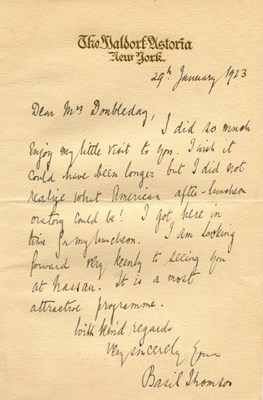 The Waldorf-Astoria
New York.
29th January 1923
Dear Mrs Doubleday,
I did so much
enjoy my little visit to you. I wish it
could have been longer but I did not
realize what American after-luncheon
oratory could be! I got here in
time for my luncheon. I am looking
forward very keenly to seeing you
at Nassau. It is a most
attractive programme.
With kind regards
Very sincerely yours
Basil Thomson